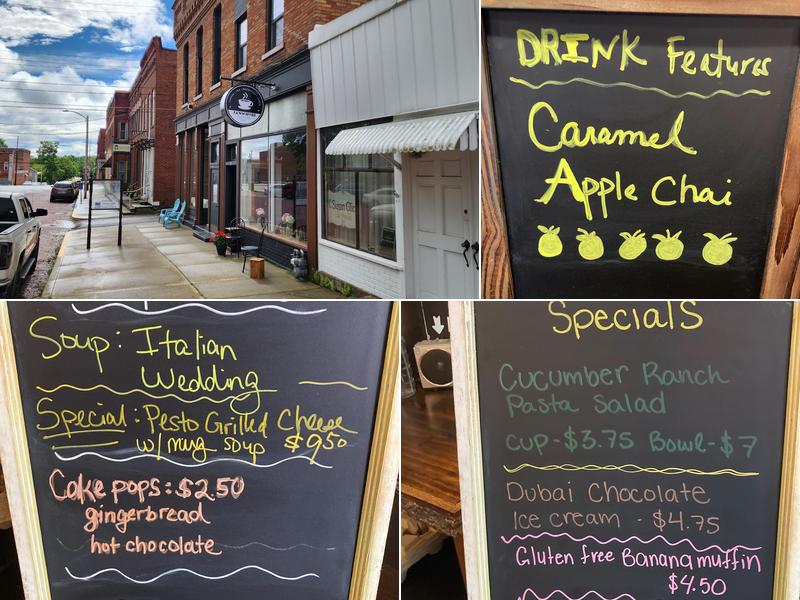 DRINK Features
Caramel
Apple Chai
Soup: Italian
Wedding
Special: Pesto Grilled Cheese
w/mug soup $9.50
Cake pops: $2.50
gingerbread
hot chocolate
Specials
Cucumber Ranch
Pasta Salad
cup - $3.75 Bowl - $7
Dubai Chocolate
Ice cream - $4.75
Gluten free Banana muffin
$4.50